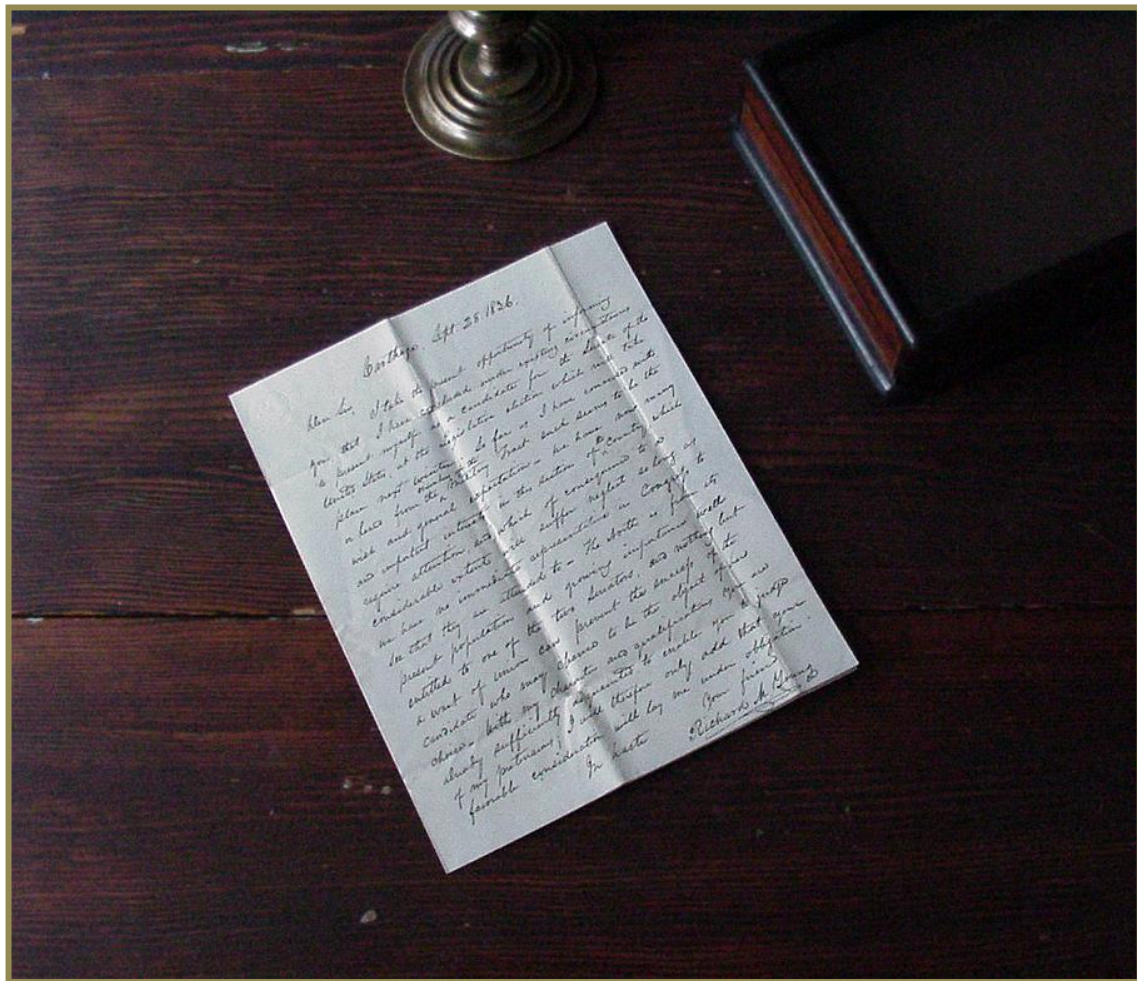 Carthage Sept. 28. 1836.
Dear Sir, I take the present opportunity of informing
you that I have concluded under existing circumstances
to present myself as a candidate for the Senate of the
United States, at the Legislative election which will take
place next winter. So far as I have conversed with
a hand from the Military Tract such seems to be the
wish and general expectation - we have now many
and important interests in this section of the Country which
require attention, and which if consequence to a
considerable extent will suffer neglect so long as
we have no immediate representative in Congress to
see that they are attended to - The North is from its
present population and growing importance well
entitled to one of the two Senators, and nothing but
a want of union can prevent the success of the
candidate who may chance to be the object of our
choice - With my character and qualifications you are
already sufficiently acquainted to enable you to judge
of my pretensions; I will therefore only add that your
favorable consideration will lay me under obligation.
In haste Your friend
Richard M. Young